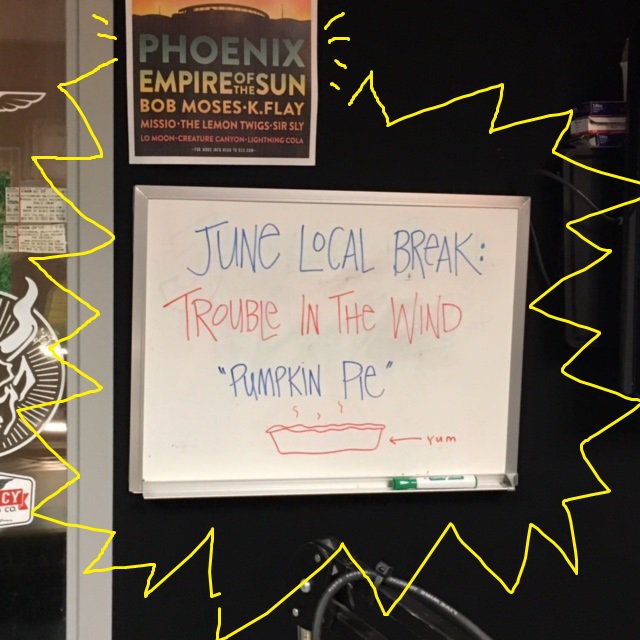 PHOENIX
EMPIRE OF THE SUN
BOB MOSES·K.FLAY
MISSIO·THE LEMON TWIGS·SIR SLY
LO MOON·CREATURE CANYON·LIGHTNING COLA
JUNE LOCAL BREAK:
TROUBLE IN THE WIND
"PUMPKIN PIE"
YUM
CY
CO.